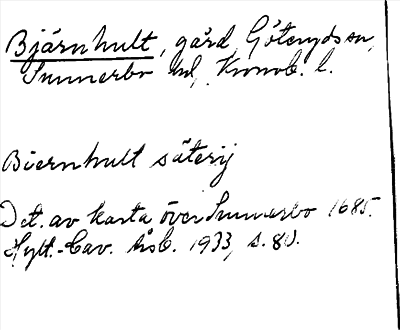 Bjärnhult, gård, Göteryds sn,
Sunnerbo hd, Kronob. l.
Biernhult säterij
Det. av karta över Sunnerbo 1685.
Hylt.-Cav. årsb. 1933, s. 80.